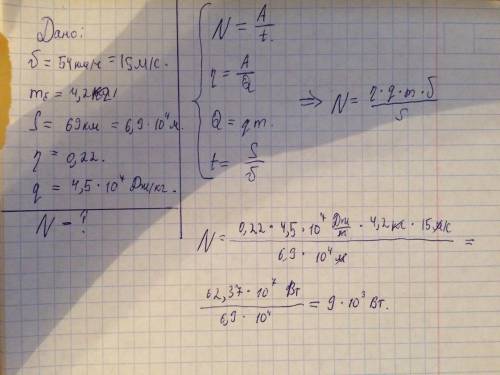 Дано:
υ = 54 км/ч = 15 м/с.
mб = 4,2 кг
S = 69 км = 6,9 · 10⁴ м.
η = 0,22.
q = 4,5 · 10⁴ Дж/кг.
N - ?
N = A/t.
η = A/Q
Q = qm.
t = S/υ
=> N = η · q · m · υ / S
N = 0,22 · 4,5 · 10⁷ Дж/т · 4,2 кг · 15 м/с / 6,9 · 10⁴ м =
62,37 · 10⁷ Вт / 6,9 · 10⁴ = 9 · 10³ Вт.